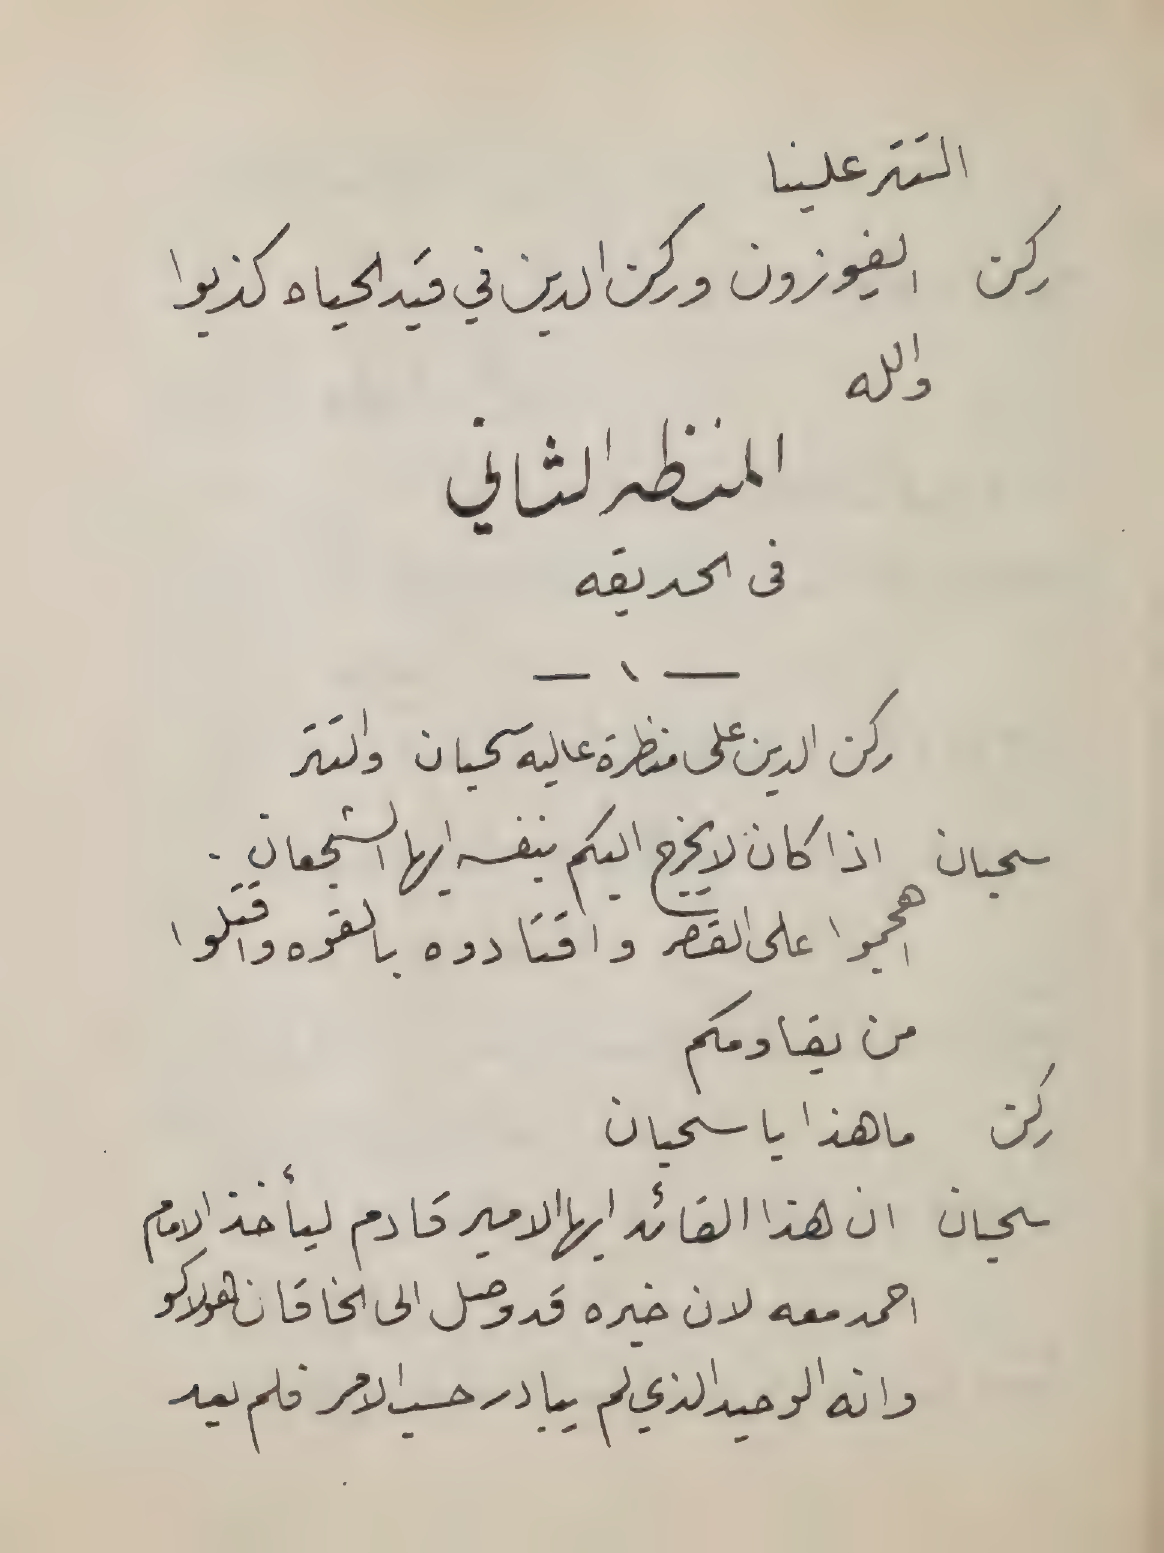 التتر علينا
ركن ايفوزون وركن الدين في قيد الحياه كذبوا
والله
المنظر الثاني
فى الحديقه
— ١ —
ركن الدين على منظرة عاليه سحبان والتتر
سحبان اذا كان لا يخرج اليكم بنفسه ايها الشجعان .
اهجموا على القصر واقتادوه بالقوه واقتلوا
من يقاومكم
ركن ما هذا يا سحبان
سحبان ان هذا القائد ايها الامير قادم ليأخذ الامام
احمد معه لان خبره قد وصل الى الخاقان هولاكو
وانه الوحيد الذي لم يبادر حسب الامر فلم يعد